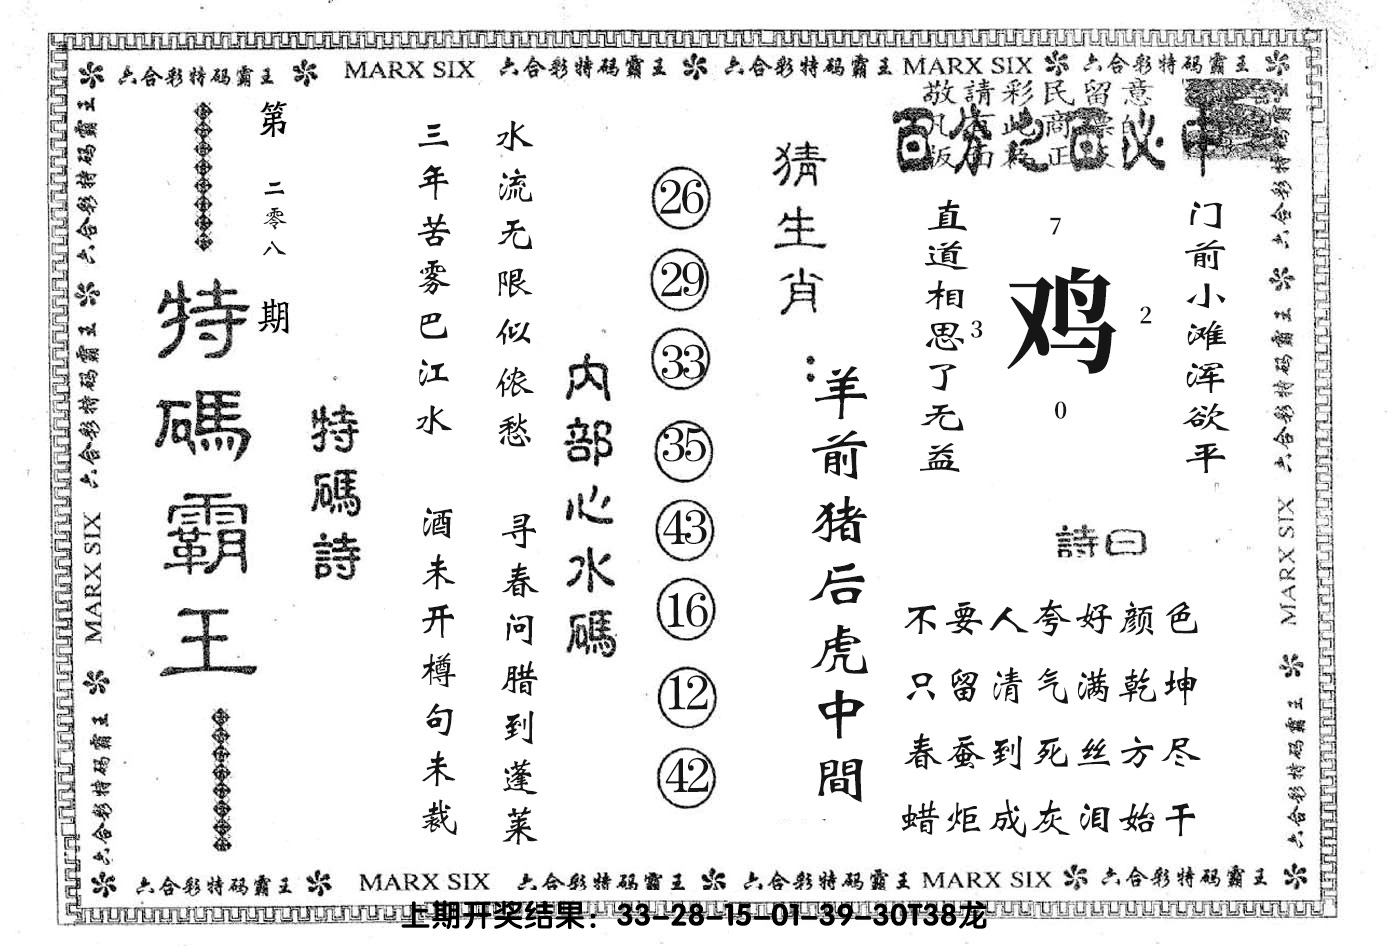 六合彩特码霸王 MARX SIX 六合彩特码霸王 六合彩特码霸王 MARX SIX 六合彩特码霸王
第二零八期
特碼霸王
特碼詩
三年苦雾巴江水
水流无限似侬愁
酒未开樽句未裁
寻春问腊到蓬莱
内部心水碼
26
29
33
35
43
16
12
42
猜生肖：
羊前猪后虎中間
敬請彩民留意
百分之百必中
直道相思了无益
7
3
鸡
2
0
门前小滩浑欲平
詩曰
不要人夸好颜色
只留清气满乾坤
春蚕到死丝方尽
蜡炬成灰泪始干
六合彩特码霸王 六合彩特码霸王 MARX SIX 六合彩特码霸王
六合彩特码霸王 六合彩特码霸王 MARX SIX 六合彩特码霸王
六合彩特码霸王 MARX SIX 六合彩特码霸王 六合彩特码霸王 MARX SIX 六合彩特码霸王
上期开奖结果：33-28-15-01-39-30T38龙